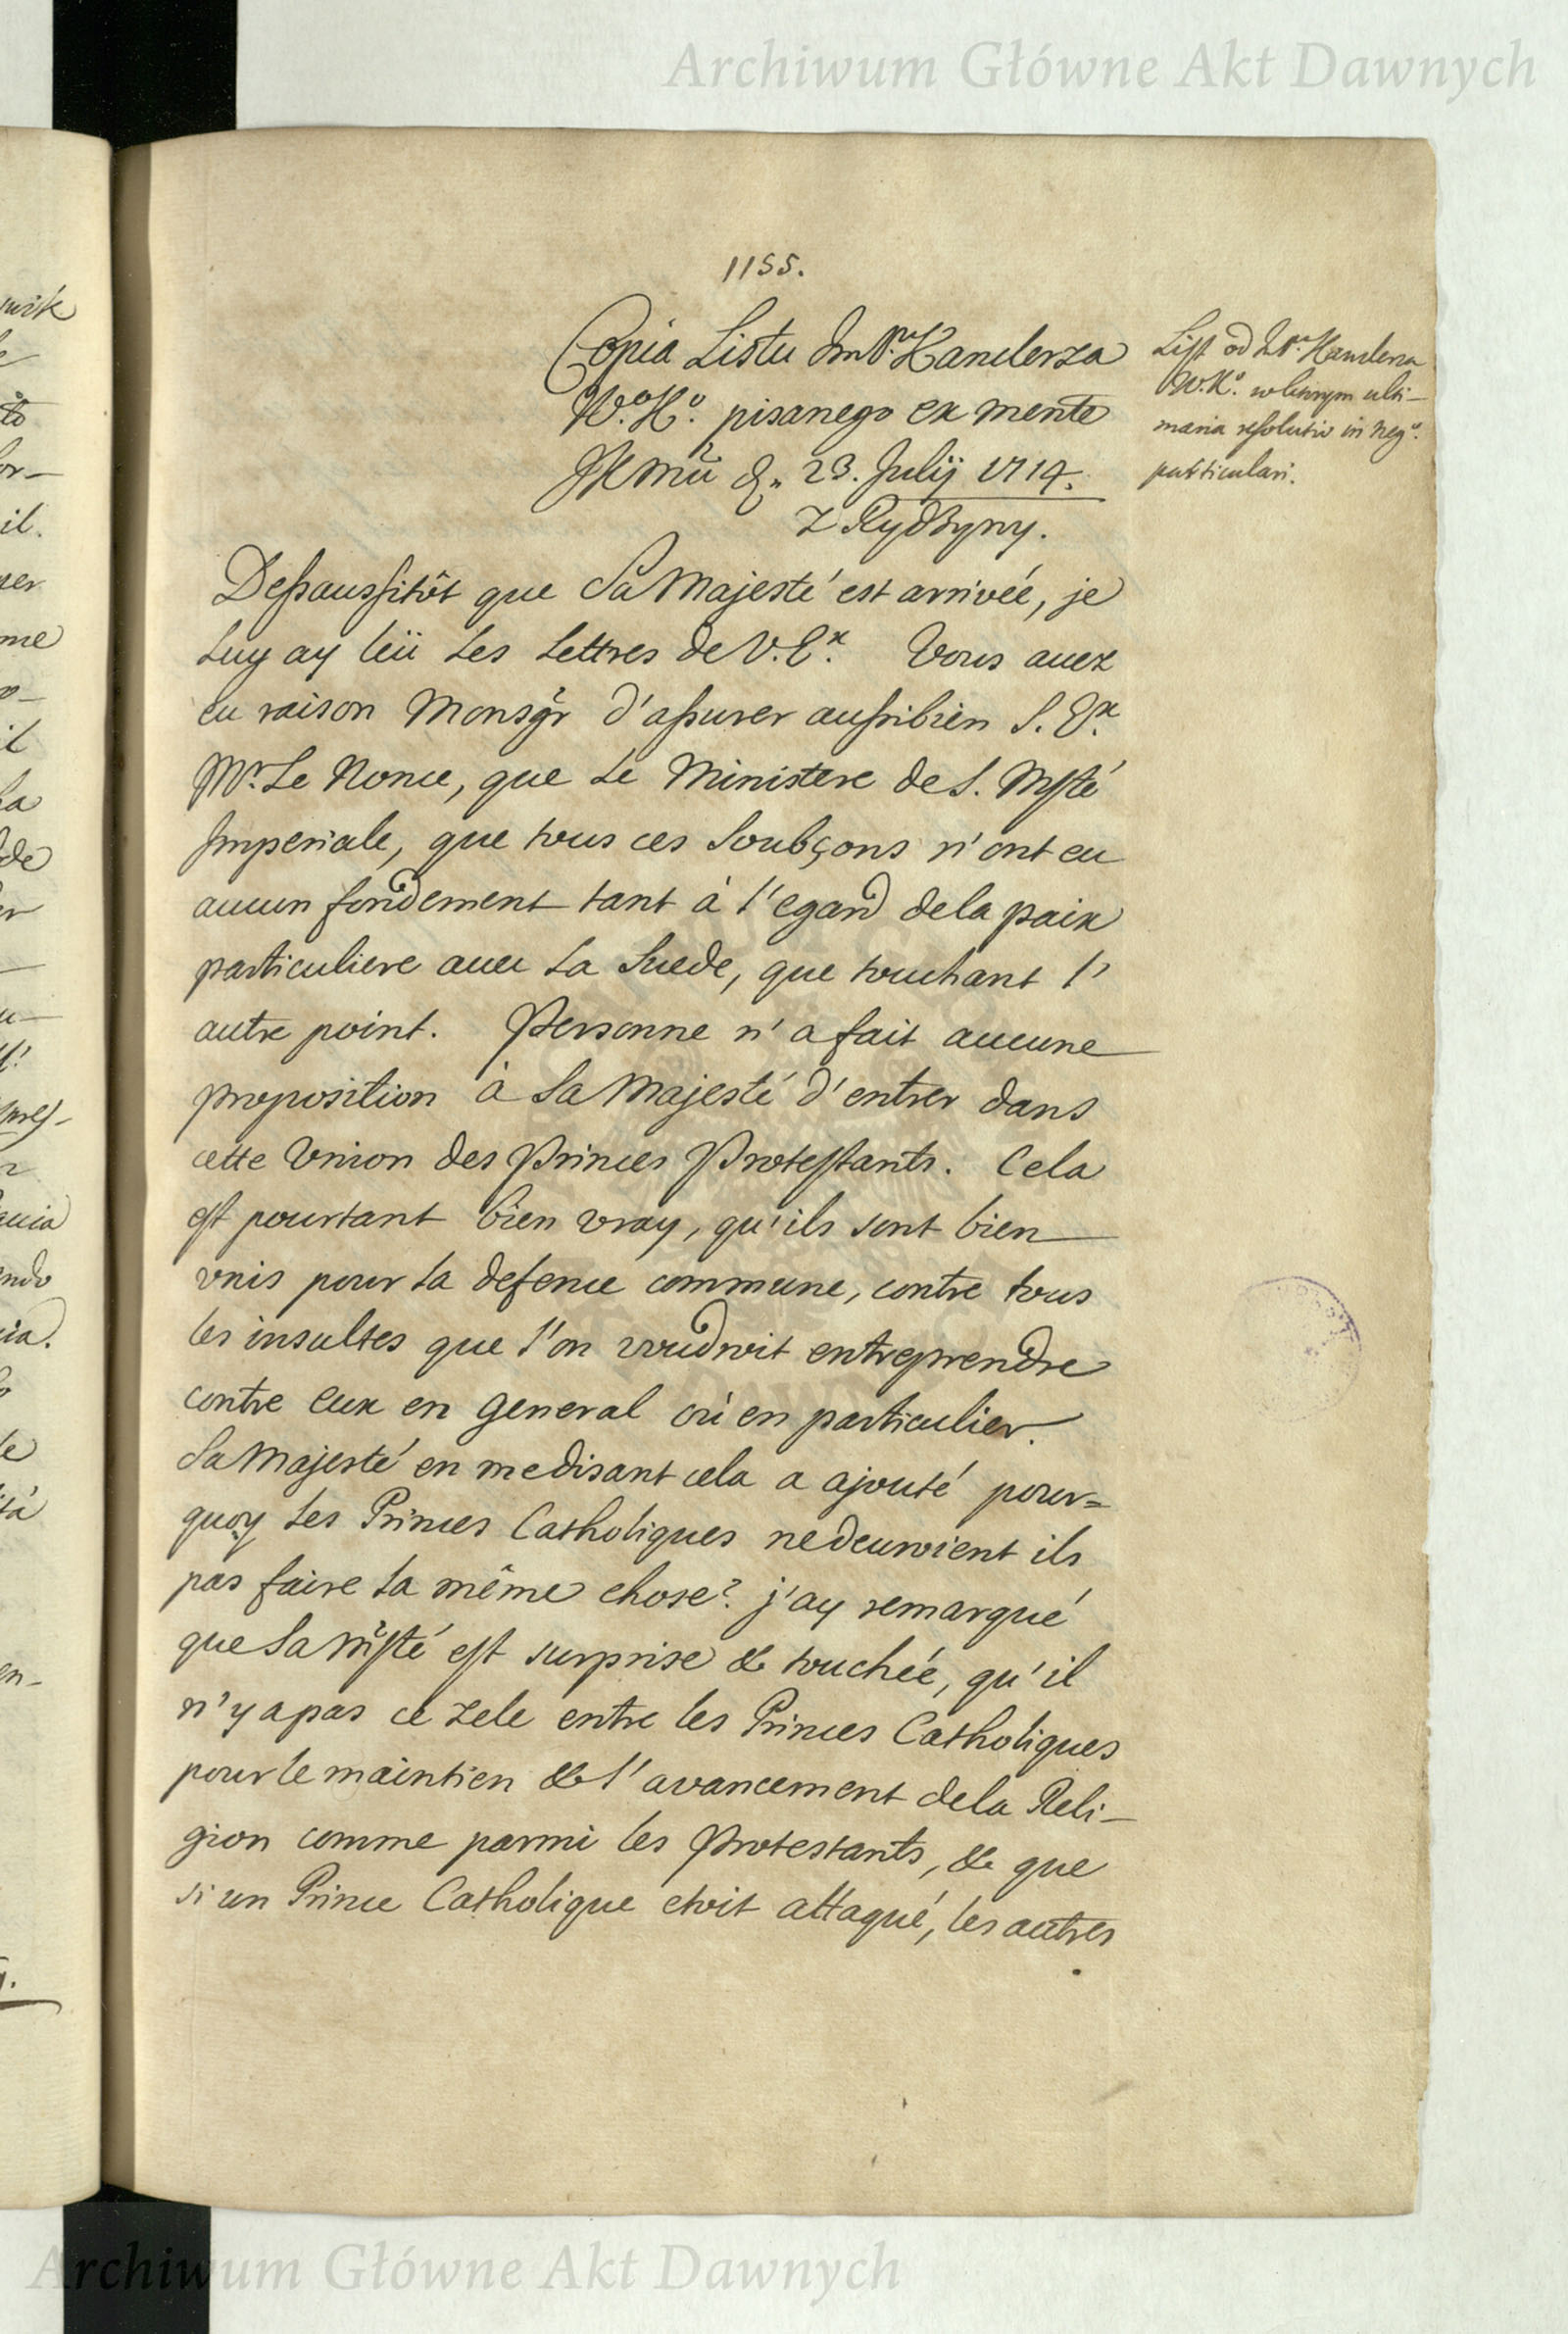 Archiwum Główne Akt Dawnych
1155.
Copia Listu JmP. Kanclerza
W.oK.o pisanego ex mente
JKMći d. 23. Julij 1714.
z Rydzyny.
List od JmP. Kanclerza
W.K.o w którym ulti-
maria resolutio in neg.o
particulari.
Desaussitôt que Sa Majesté est arrivée, je
Luy ay leü Les Lettres de V.Ex. Vous avez
eu raison Monsgr d'assurer aussibien S. Ex.
Mr. Le Nonce, que Le Ministere de S. Msté
Imperiale, que tous ces Soubçons n'ont eu
aucun fondement tant à l'egard dela paix
particuliere avec La Suede, que touchant l'
autre point. Personne n'a fait aucune
proposition à Sa Majesté d'entrer dans
cette Vnion des Princes Protestants. Cela
est pourtant bien vray, qu'ils sont bien
vnis pour La defence commune, contre tous
les insultes que l'on voudroit entreprendre
contre eux en general où en particulier.
Sa Majesté en medisant cela a ajouté pour=
quoy Les Princes Catholiques nedeuroient ils
pas faire La même chose? j'ay remarqué
que Sa Msté est surprise & touchée, qu'il
n'y apas ce zele entre les Princes Catholiques
pour le maintien & l'avancement dela Reli-
gion comme parmi les Protestants, & que
si un Prince Catholique etoit attaqué, les autres
Archiwum Główne Akt Dawnych